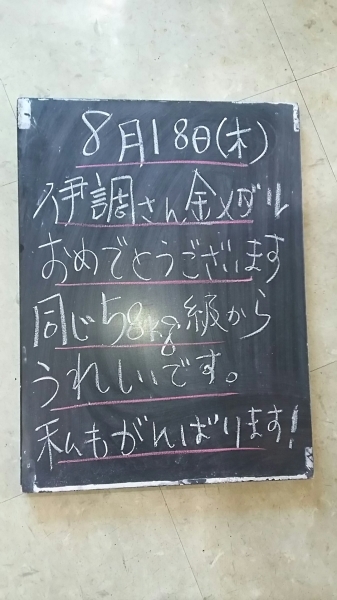 8月18日(木)
伊調さん金メダル
おめでとうございます
同じ58kg級から
うれしいです。
私もがんばります!